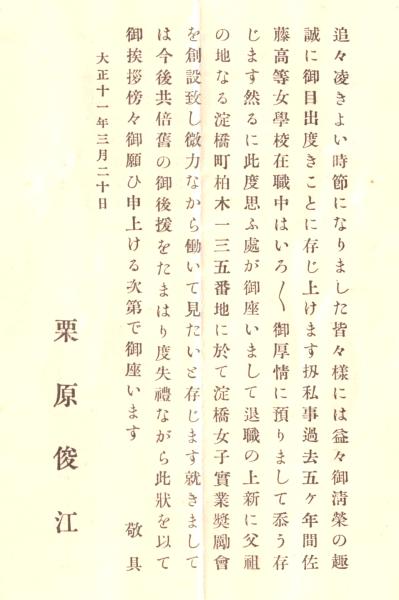 追々凌きよい時節になりました皆々樣には益々御淸榮の趣
誠に御目出度きことに存じ上けます扨私事過去五ヶ年間佐
藤高等女學校在職中はいろ〱御厚情に預りまして忝う存
じます然るに此度思ふ處が御座いまして退職の上新に父祖
の地なる淀橋町柏木一三五番地に於て淀橋女子實業奬勵會
を創設致し微力なから働いて見たいと存じます就きまして
は今後共倍舊の御後援をたまはり度失禮ながら此狀を以て
御挨拶傍々御願ひ申上ける次第で御座います　敬具
大正十一年三月二十日
栗原俊江